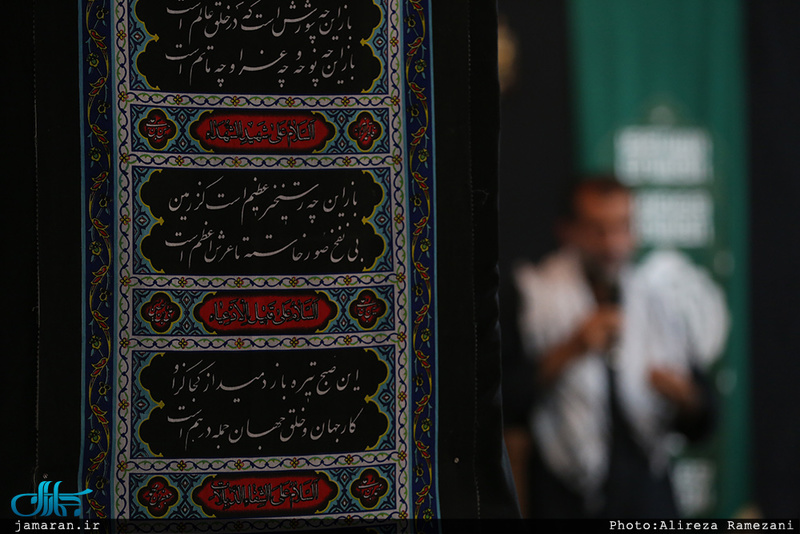 باز این چه شورش است که در خلق عالم است
باز این چه نوحه و چه عزا و چه ماتم است
السلام علی شهید الشهداء
باز این چه رستخیز عظیم است کز زمین
بی نفخ صور خاسته تا عرش اعظم است
السلام علی قتیل الادعیاء
این صبح تیره باز دمید از کجا کزو
کار جهان و خلق جهان جمله درهم است
السلام علی
جماران
jamaran.ir
Photo:Alireza Ramezani